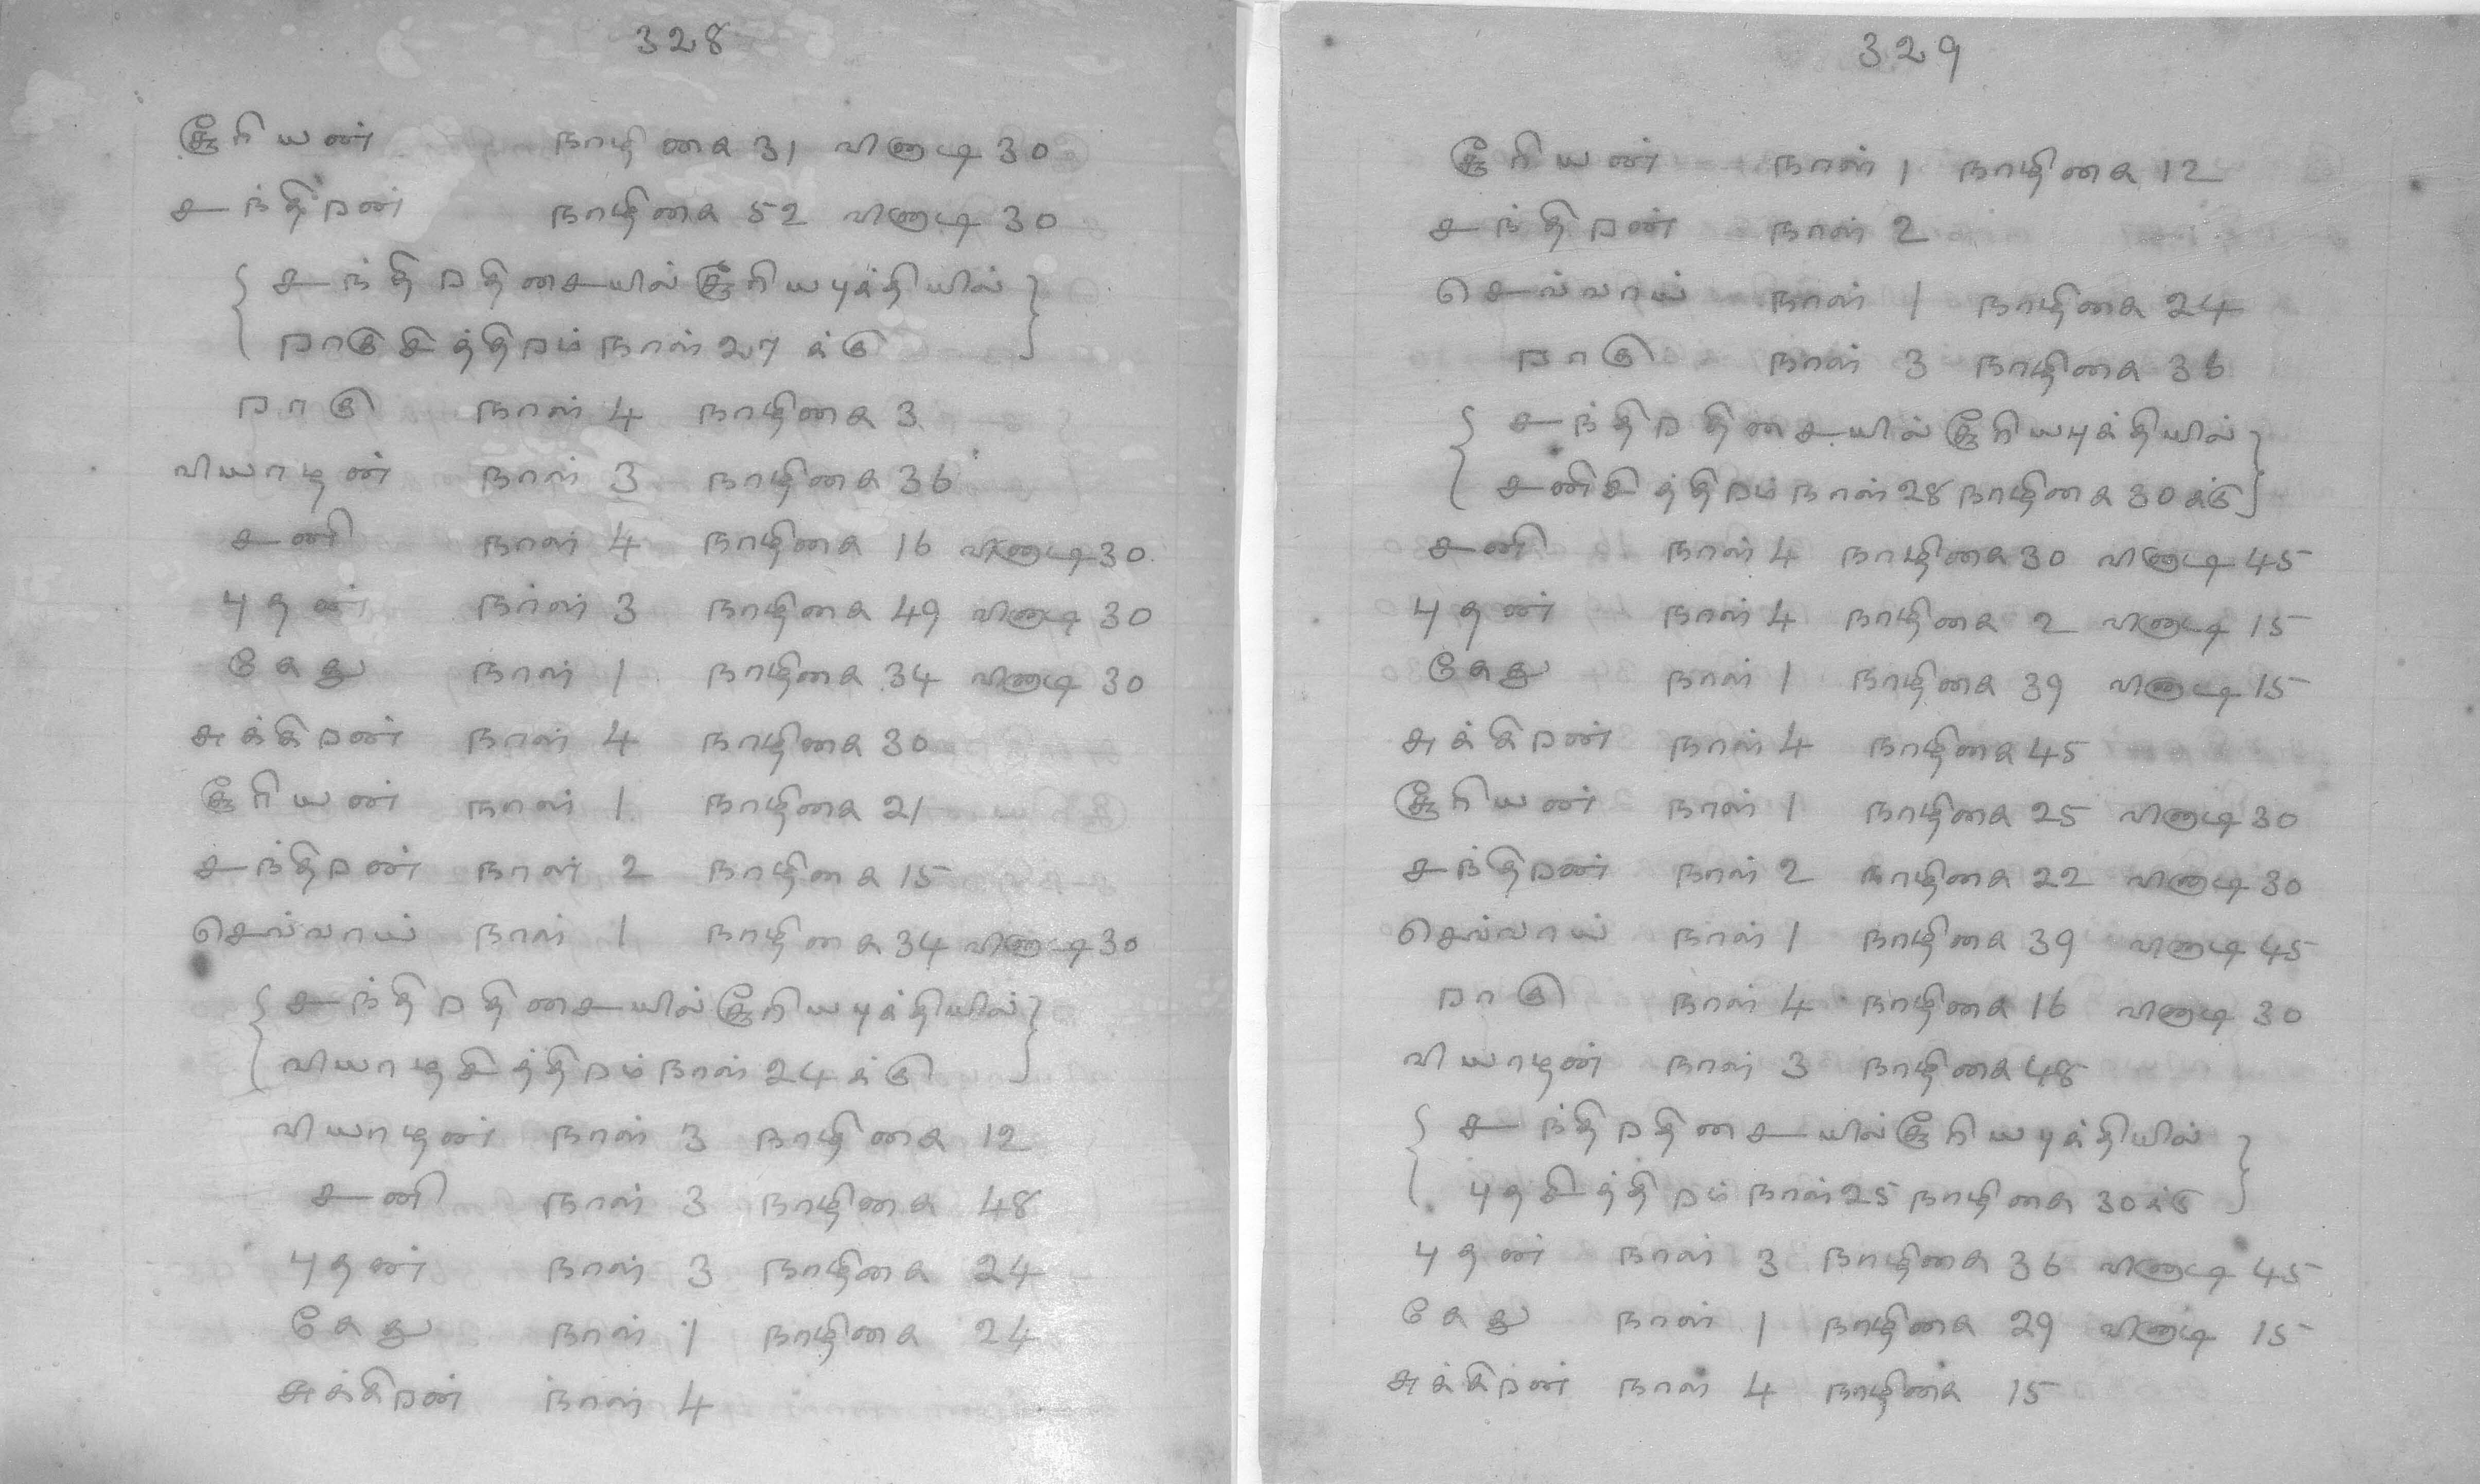 328
சூரியண் நாழிகை 31 விணாடி 30
சந்திறண் நாழிகை 52 விணாடி 30
{ சந்திறதிசையில் சூரியபுக்தியில்
றாகுசித்திறம் நாள் 27 க்கு }
றாகு நாள் 4 நாழிகை 3
வியாழண் நாள் 3 நாழிகை 36
சணி நாள் 4 நாழிகை 16 விணாடி 30
புதண் நாள் 3 நாழிகை 49 விணாடி 30
கேது நாள் 1 நாழிகை 34 விணாடி 30
சுக்கிறண் நாள் 4 நாழிகை 30
சூரியண் நாள் 1 நாழிகை 21
சந்திறண் நாள் 2 நாழிகை 15
செவ்வாய் நாள் 1 நாழிகை 34 விணாடி 30
{ சந்திறதிசையில் சூரியபுக்தியில்
வியாழசித்திறம் நாள் 24 க்கு }
வியாழண் நாள் 3 நாழிகை 12
சணி நாள் 3 நாழிகை 48
புதண் நாள் 3 நாழிகை 24
கேது நாள் 1 நாழிகை 24
சுக்கிறண் நாள் 4
329
சூரியண் நாள் 1 நாழிகை 12
சந்திறண் நாள் 2
செவ்வாய் நாள் 1 நாழிகை 24
றாகு நாள் 3 நாழிகை 36
{ சந்திறதிசையில் சூரியபுக்தியில்
சணிசித்திறம் நாள் 28 நாழிகை 30 க்கு }
சணி நாள் 4 நாழிகை 30 விணாடி 45
புதண் நாள் 4 நாழிகை 2 விணாடி 15
கேது நாள் 1 நாழிகை 39 விணாடி 15
சுக்கிறண் நாள் 4 நாழிகை 45
சூரியண் நாள் 1 நாழிகை 25 விணாடி 30
சந்திறண் நாள் 2 நாழிகை 22 விணாடி 30
செவ்வாய் நாள் 1 நாழிகை 39 விணாடி 45
றாகு நாள் 4 நாழிகை 16 விணாடி 30
வியாழண் நாள் 3 நாழிகை 48
{ சந்திறதிசையில் சூரியபுக்தியில்
புதசித்திறம் நாள் 25 நாழிகை 30 க்கு }
புதண் நாள் 3 நாழிகை 36 விணாடி 45
கேது நாள் 1 நாழிகை 29 விணாடி 15
சுக்கிறண் நாள் 4 நாழிகை 15